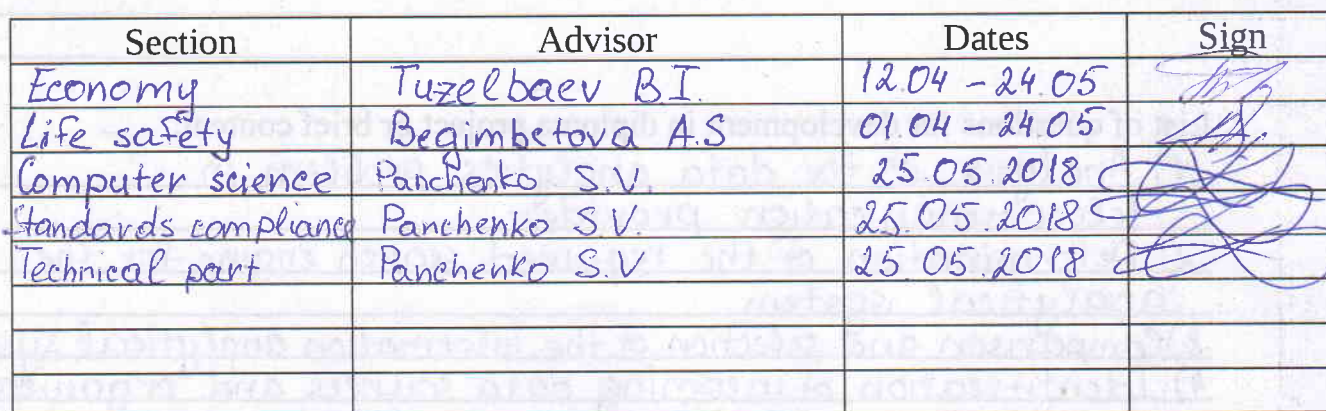 Section Advisor Dates Sign
Economy Tuzelbaev B.I. 12.04 – 24.05
Life safety Begimbetova A.S 01.04 – 24.05
Computer science Panchenko S.V. 25.05.2018
Standards compliance Panchenko S.V. 25.05.2018
Technical part Panchenko S.V 25.05.2018